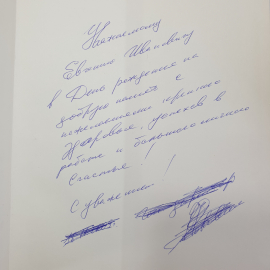 Уважаемому
Евгению Ивановичу
в День рождения на
добрую память с
пожеланиями крепкого
Здоровья, успехов в
работе и большого личного
Счастья!!
С уважением